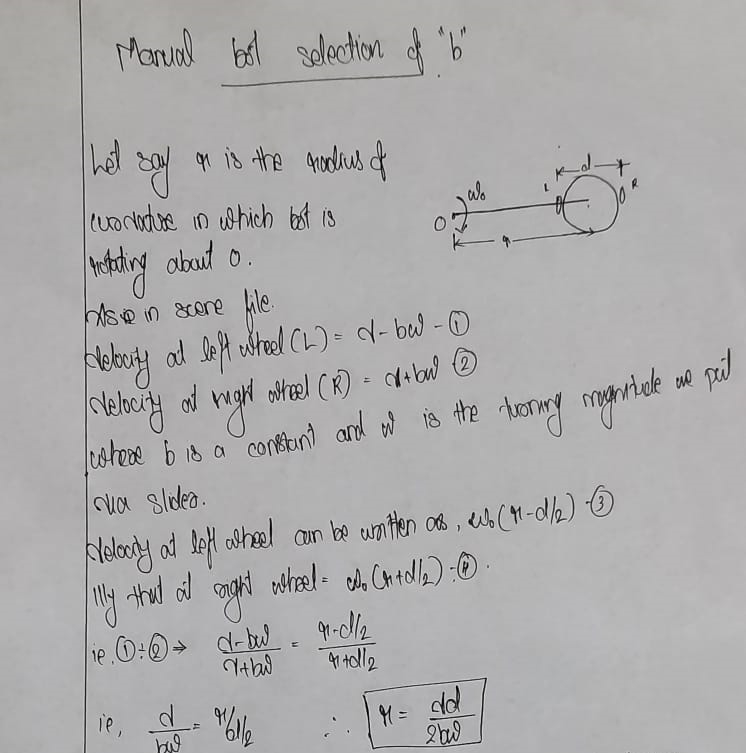 Manual bot selection of "b"
Let say r is the radius of
curvature in which bot is
rotating about O.
in scene file.
L d R
ω₀
O
r
Velocity at left wheel (L) = v - bω - ①
Velocity at right wheel (R) = v + bω ②
where b is a constant and ω is the turning magnitude we put
via slider.
Velocity at left wheel can be written as, ω₀(r - d/2) - ③
Illy that at right wheel = ω₀(r + d/2) - ④.
ie, ① ÷ ② ⇒ (v - bω)/(v + bω) = (r - d/2)/(r + d/2)
ie, v/bω = r/d/2 ∴ r = vd/2bω